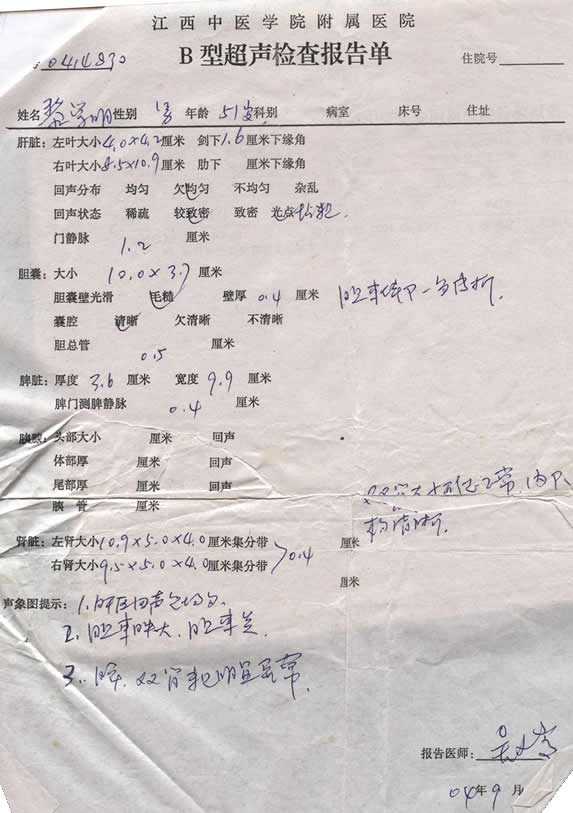 江西中医学院附属医院
B型超声检查报告单
0414830 住院号
姓名 性别 男 年龄 51岁 科别 病室 床号 住址
肝脏：左叶大小4.0×4.2厘米 剑下1.6厘米下缘角
右叶大小8.5×10.9厘米 肋下 厘米下缘角
回声分布 均匀 欠均匀 不均匀 杂乱
回声状态 稀疏 较致密 致密 光点
门静脉 1.2 厘米
胆囊：大小 10.0×3.7厘米
胆囊壁光滑 毛糙 壁厚 0.4 厘米 胆囊
囊腔 清晰 欠清晰 不清晰
胆总管 0.5 厘米
脾脏：厚度 3.6 厘米 宽度 9.9 厘米
脾门测脾静脉 0.4 厘米
胰腺：头部大小 厘米 回声
体部厚 厘米 回声
尾部厚 厘米 回声
胰管 厘米
双肾大小形态正常，内部
结构清晰.
肾脏：左肾大小10.9×5.0×4.0厘米集分带 厘米
右肾大小9.5×5.0×4.0厘米集分带 0.4
厘米
声象图提示：1.肝区回声欠均匀.
2.胆囊肿大.胆囊炎
3.脾.双肾未见明显异常.
报告医师：
04年9月